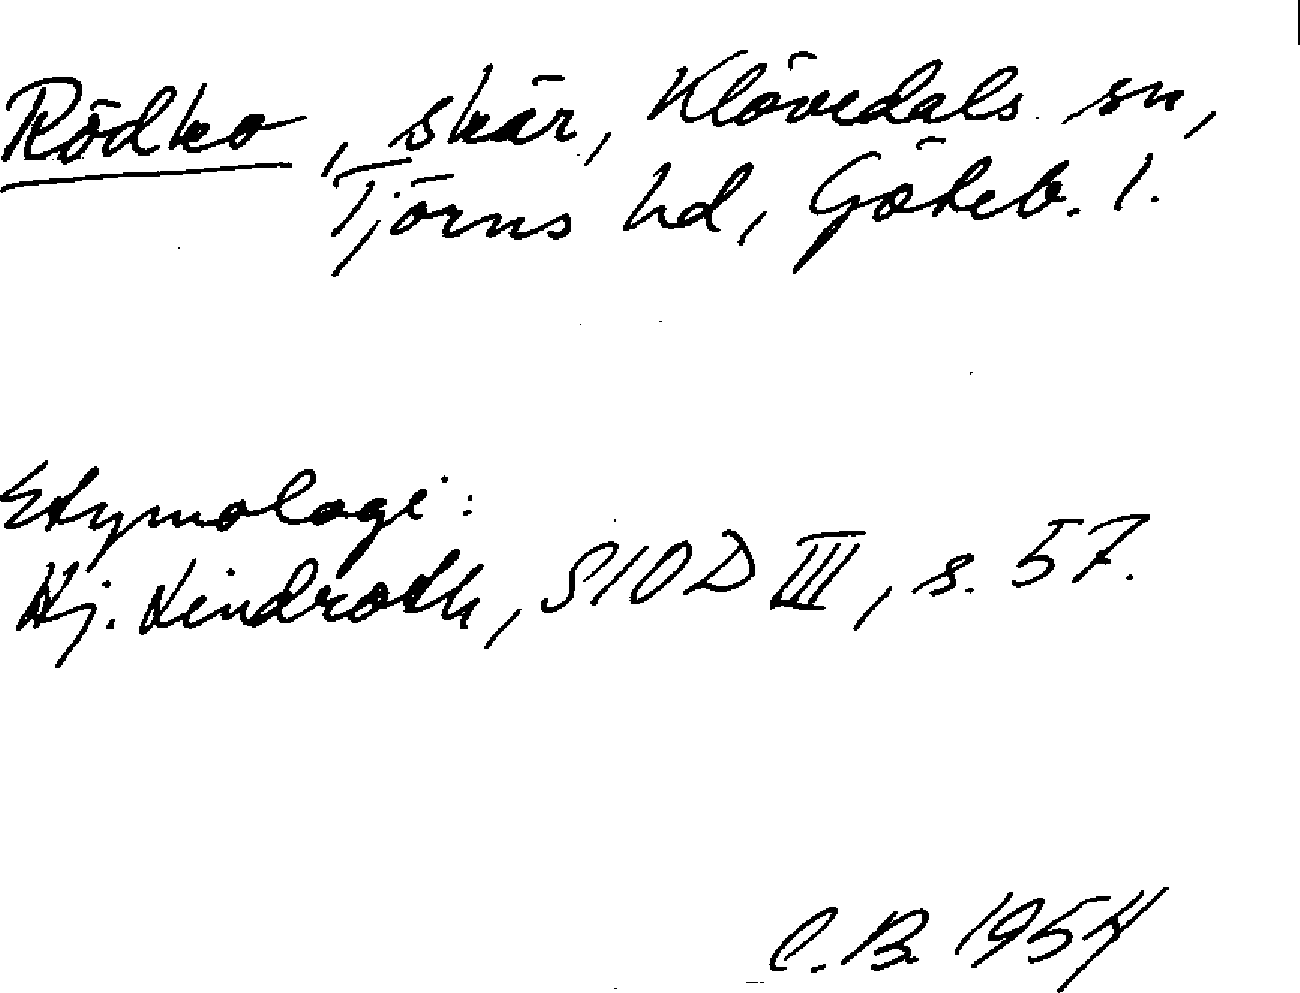 Rödko, skär, Klövedals sn,
Tjörns hd, Göteb. l.
Etymologi:
Hj. Lindroth, SIOD III, s. 57.
C. B. 1954